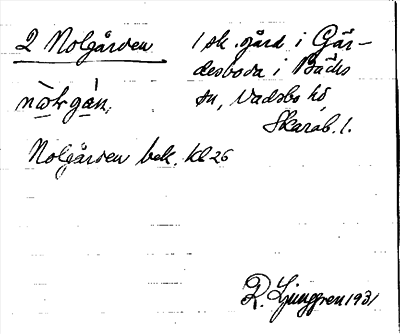 2 Nolgården
1 sk. gård i Gär-
desboda i Bäcks
sn, Vadsbo hd,
Skarab. l.
Nolgården bok. Kl 26
R. Ljunggren 1931